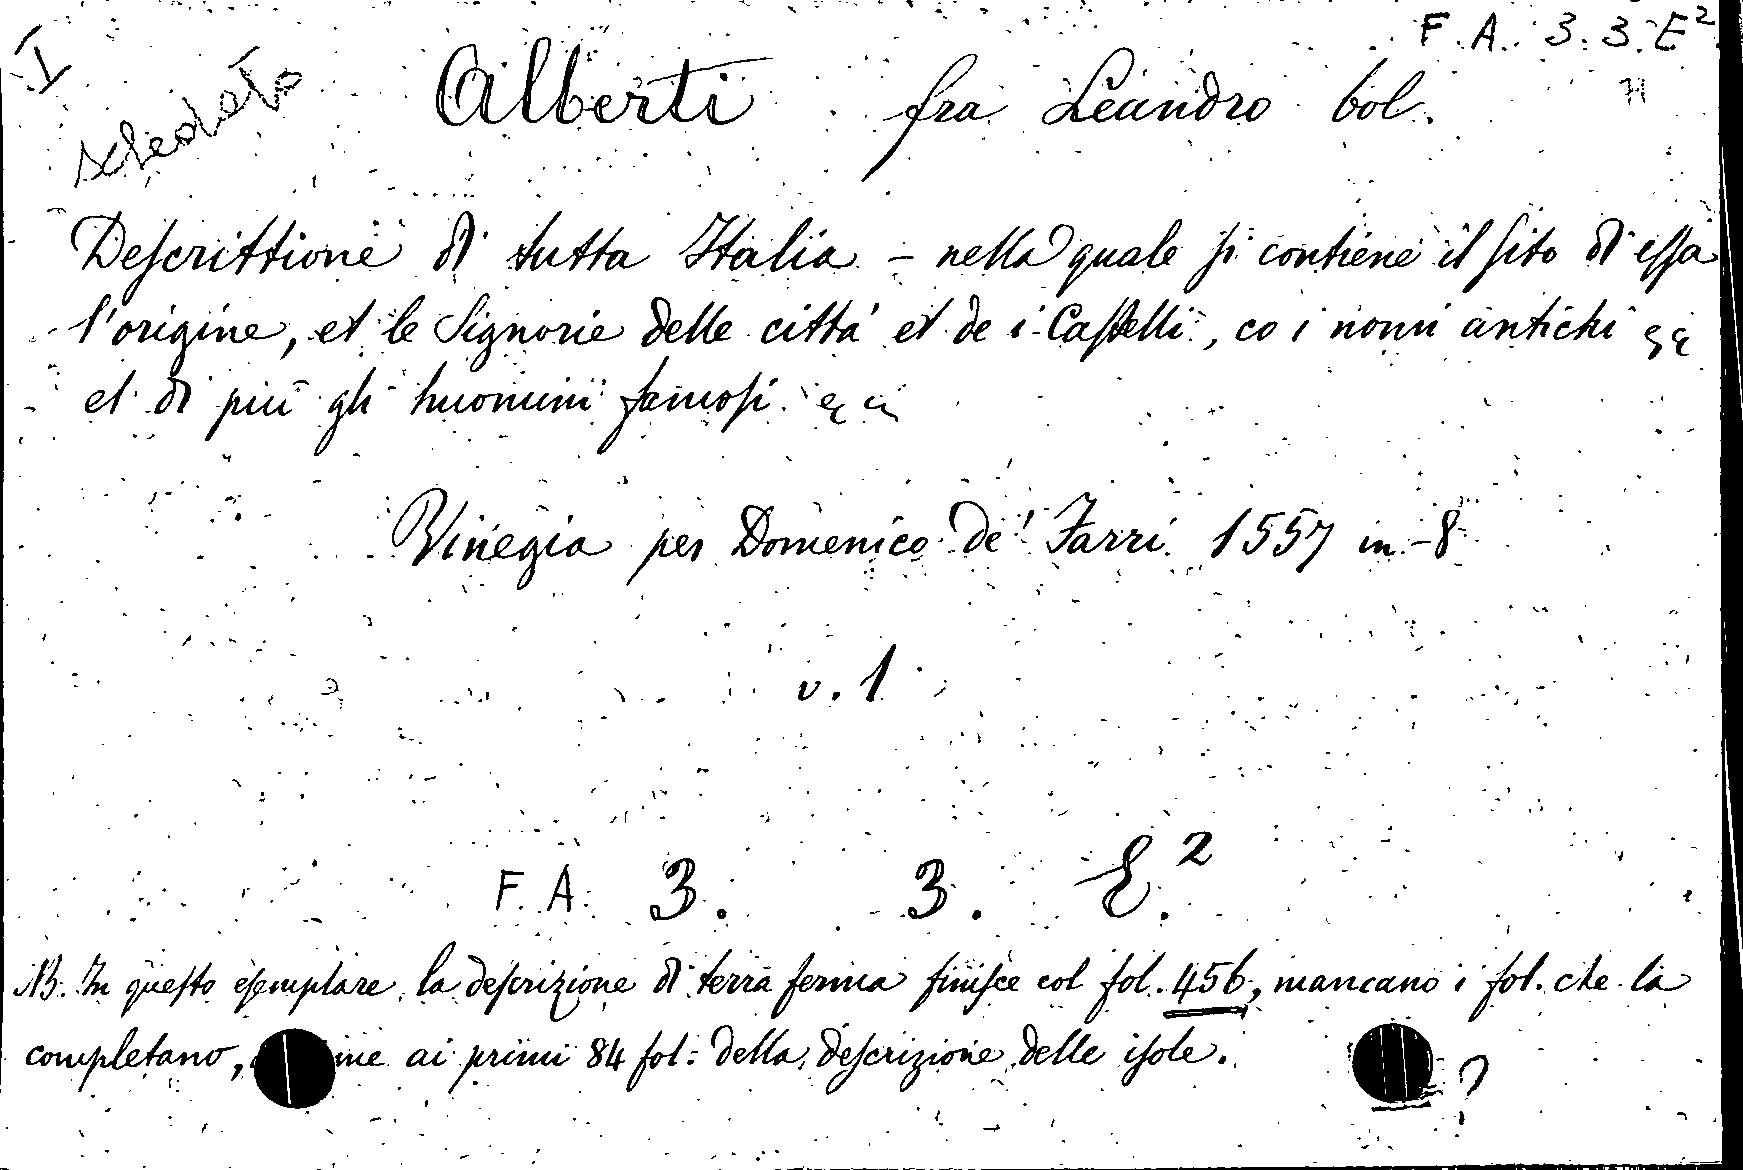 F. A. 3. 3. E²
I
schedato
Alberti fra Leandro bol.
Descrittione di tutta Italia - nella quale si contiene il sito di essa
l'origine, et le Signorie delle cittá et de i Castelli, co i nomi antichi
et di piú gli huomini famosi.
Vinegia per Domenico de' Farri 1557 in-8
v. 1
F. A. 3. 3. E.²
NB. In questo esemplare la descrizione di terra ferma finisce col fol. 456, mancano i fol. che la
completano, ai primi 84 fol: della descrizione delle isole.
?